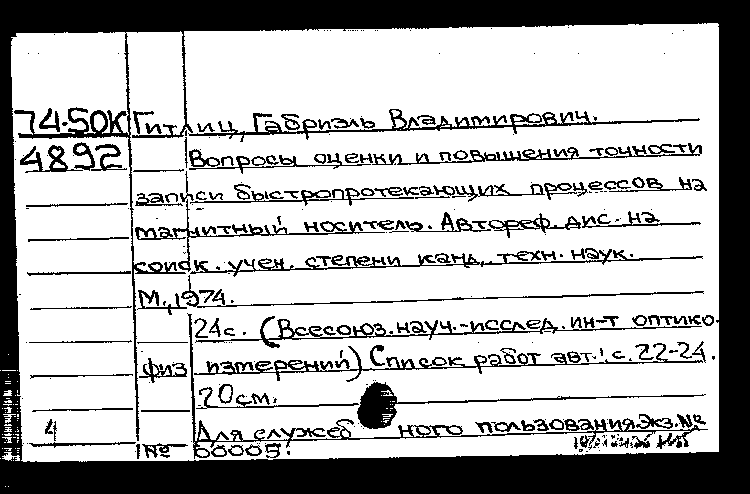 74-50К Гитлиц, Габриэль Владимирович.
4892 Вопросы оценки и повышения точности
записи быстропротекающих процессов на
магнитный носитель. Автореф. дис. на
соиск. учен. степени канд. техн. наук.
М., 1974.
24с. (Всесоюз. науч.-исслед. ин-т оптико-
физ измерений) Список работ авт.: с. 22-24.
20см.
4 Для служебного пользования. Экз. №
№ 00005.